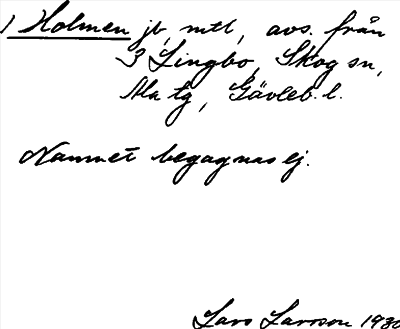 1 Holmen jb, mtl, avs. från
3 Lingbo, Skog sn,
Ala tg, Gävleb. l.
Namnet begagnas ej.
Lars Larsson 1930